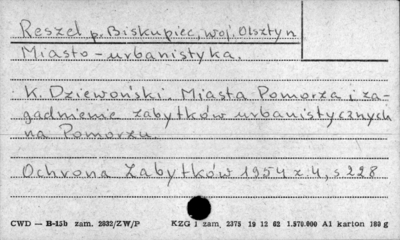 Reszel p. Biskupiec, woj. Olsztyn
Miasto - urbanistyka.
K. Dziewoński. Miasta Pomorza i za-
gadnienie zabytków urbanistycznych
na Pomorzu
Ochrona Zabytków 1954 z. 4, s 228
CWD — B-15b zam. 2832/ZW/P KZG 1 zam. 2375 19 12 62 1.570.000 A1 karton 180 g